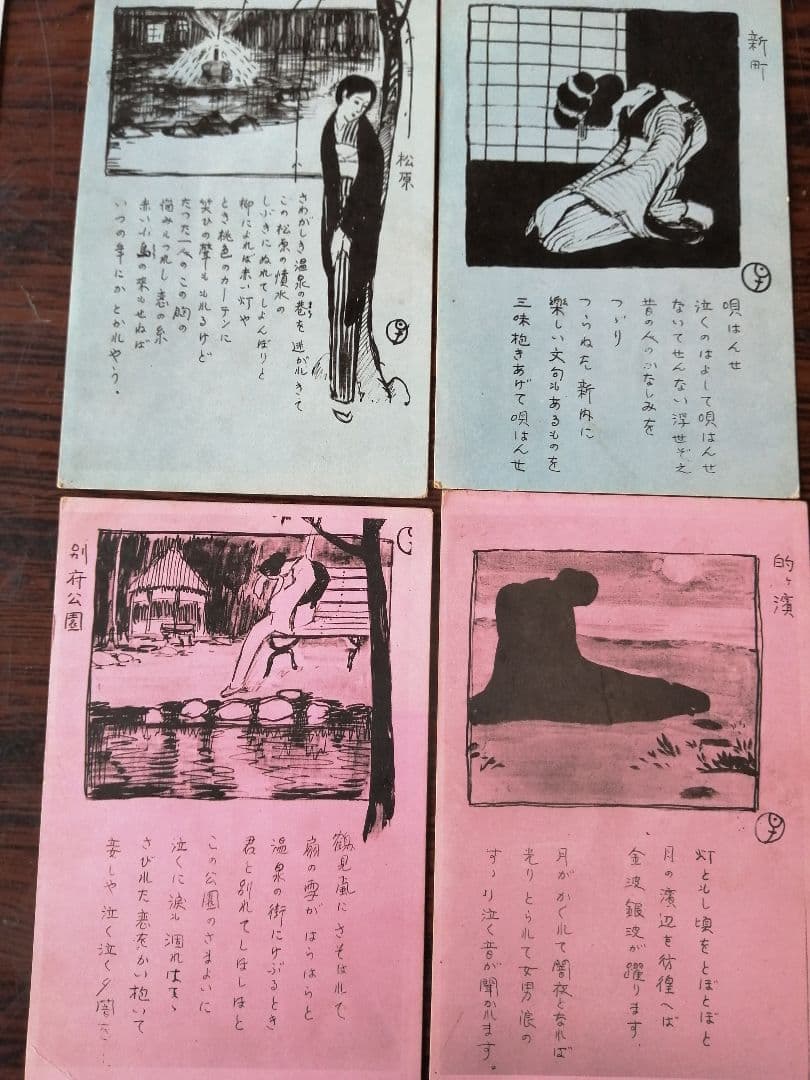 松原
さわがしき温泉の巷を逃がれきて
まち
この松原の噴水の
しぶきにぬれてしよんぼりと
柳によれば赤い灯や
とき桃色のカーテンに
笑ひの声ももれるけど
たつた一人のこの胸の
悩みもつれし恋の糸
赤い小島の来もせねば
いつの年にか とかれやう。
新町
唄はんせ
泣くのはよして唄はんせ
ないてせんない浮世ぞえ
昔の人のかなしみを
つゞり
つらねた新内に
楽しい文句もあるものを
三味抱きあげて唄はんせ
別府公園
鶴見嵐にさそはれて
扇の雪がはらはらと
温泉の街にけぶるとき
君と別れてしほしほと
この公園のさまよいに
泣くに涙も涸れはてゝ
さびれた恋をかい抱いて
妾しや泣く泣く夕闇を…
的ヶ濱
灯ともし頃をとぼとぼと
月の濱辺を彷徨へば
金波銀波が躍ります.
月がかくれて闇夜となれば
光りとられて女男浪の
すゝり泣く音が聞かれます。